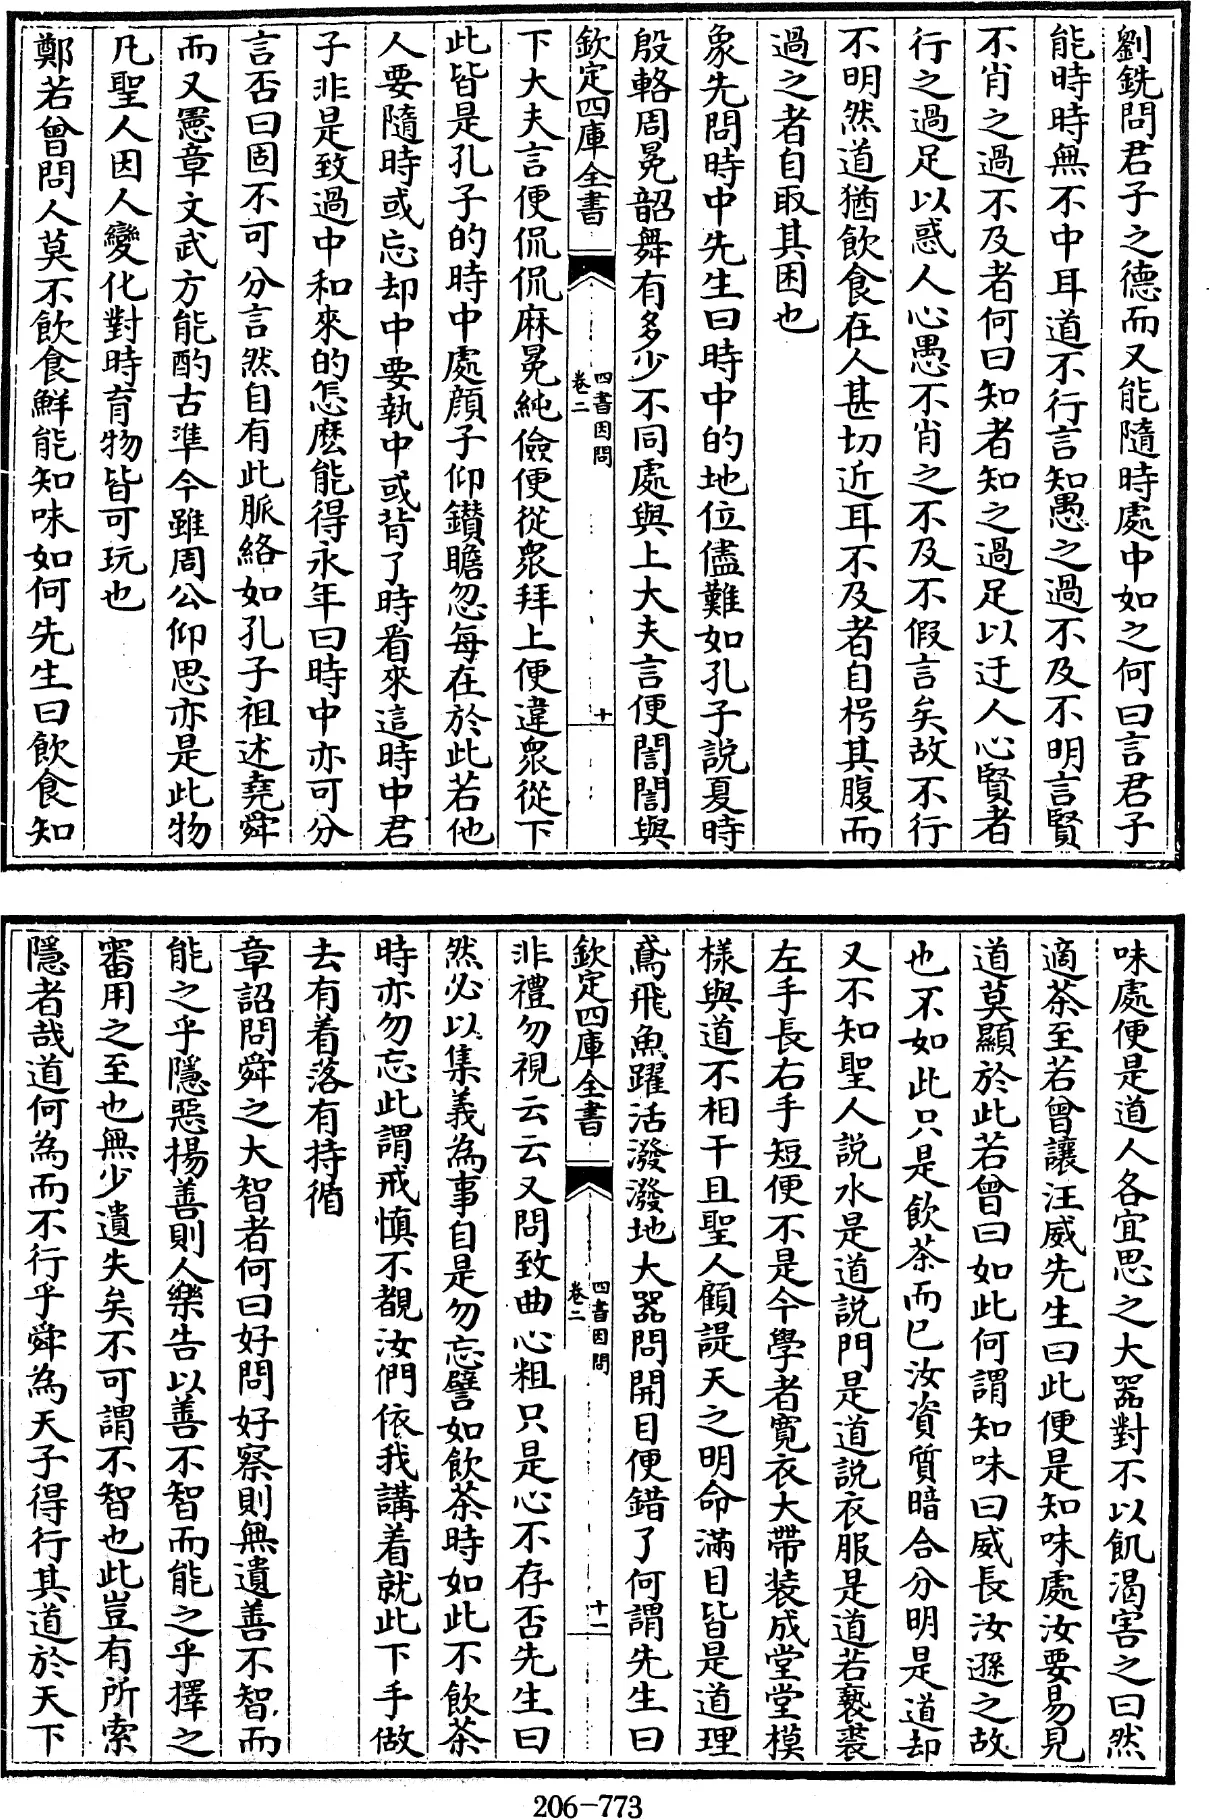 劉銑問君子之德而又能隨時處中如之何曰言君子
能時時無不中耳道不行言知愚之過不及不明言賢
不肖之過不及者何曰知者知之過足以迂人心賢者
行之過足以惑人心愚不肖之不及不假言矣故不行
不明然道猶飲食在人甚切近耳不及者自枵其腹而
過之者自取其困也
象先問時中先生曰時中的地位儘難如孔子説夏時
殷輅周冕韶舞有多少不同處與上大夫言便誾誾與
欽定四庫全書
四書因問
卷二
十
下大夫言便侃侃麻冕純儉便從衆拜上便違衆從下
此皆是孔子的時中處顔子仰鑚瞻忽每在於此若他
人要隨時或忘却中要執中或背了時看來這時中君
子非是致過中和來的怎麽能得永年曰時中亦可分
言否曰固不可分言然自有此脈絡如孔子祖述堯舜
而又憲章文武方能酌古準今雖周公仰思亦是此物
凡聖人因人變化對時育物皆可玩也
鄭若曾問人莫不飲食鮮能知味如何先生曰飲食知
味處便是道人各宜思之大器對不以飢渴害之曰然
適茶至若曾讓汪威先生曰此便是知味處汝要易見
道莫顯於此若曾曰如此何謂知味曰威長汝遜之故
也不如此只是飲茶而已汝資質暗合分明是道却
又不知聖人説水是道説門是道説衣服是道若褻裘
左手長右手短便不是今學者寛衣大帶装成堂堂模
樣與道不相干且聖人顧諟天之明命滿目皆是道理
鳶飛魚躍活潑潑地大器問開目便錯了何謂先生曰
欽定四庫全書
四書因問
卷二
十一
非禮勿視云云又問致曲心粗只是心不存否先生曰
然必以集義為事自是勿忘譬如飲茶時如此不飲茶
時亦勿忘此謂戒慎不覩汝們依我講着就此下手做
去有着落有持循
章詔問舜之大智者何曰好問好察則無遺善不智而
能之乎隱惡揚善則人樂告以善不智而能之乎擇之
審用之至也無少遺失矣不可謂不智也此豈有所索
隱者哉道何為而不行乎舜為天子得行其道於天下
206-773